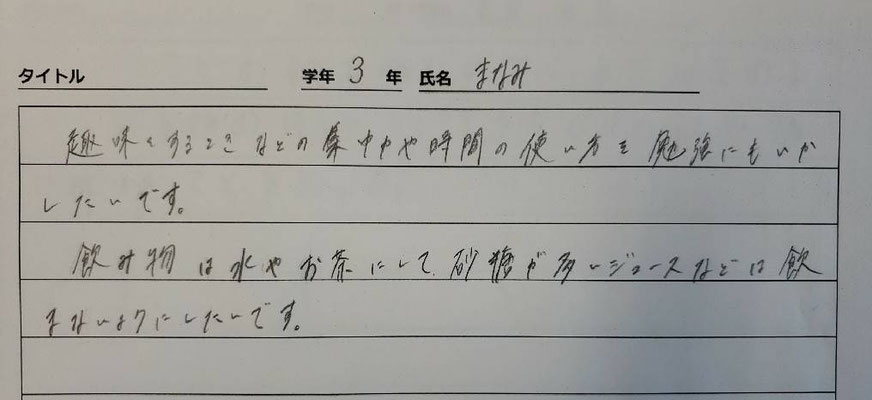 タイトル 学年 3 年 氏名 まなみ
趣味をするときなどの集中力や時間の使い方を勉強にもいか
したいです。
飲み物は水やお茶にして、砂糖が多いジュースなどは飲
まないようにしたいです。